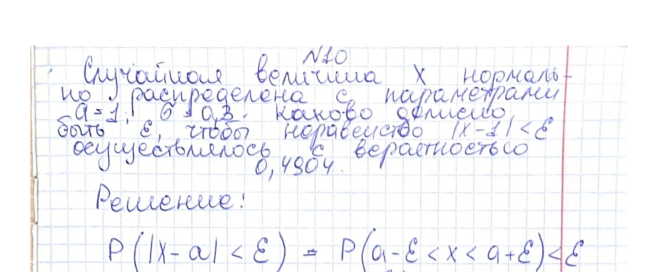 N10
Случайная величина X нормаль-
но распределена с параметрами
a = 1, σ = 0,3. Каково должно
быть ε, чтобы неравенство |x-1| < ε
осуществлялось с вероятностью
0,4904.
Решение:
P(|X-a| < ε) = P(a-ε < x < a+ε) < ε